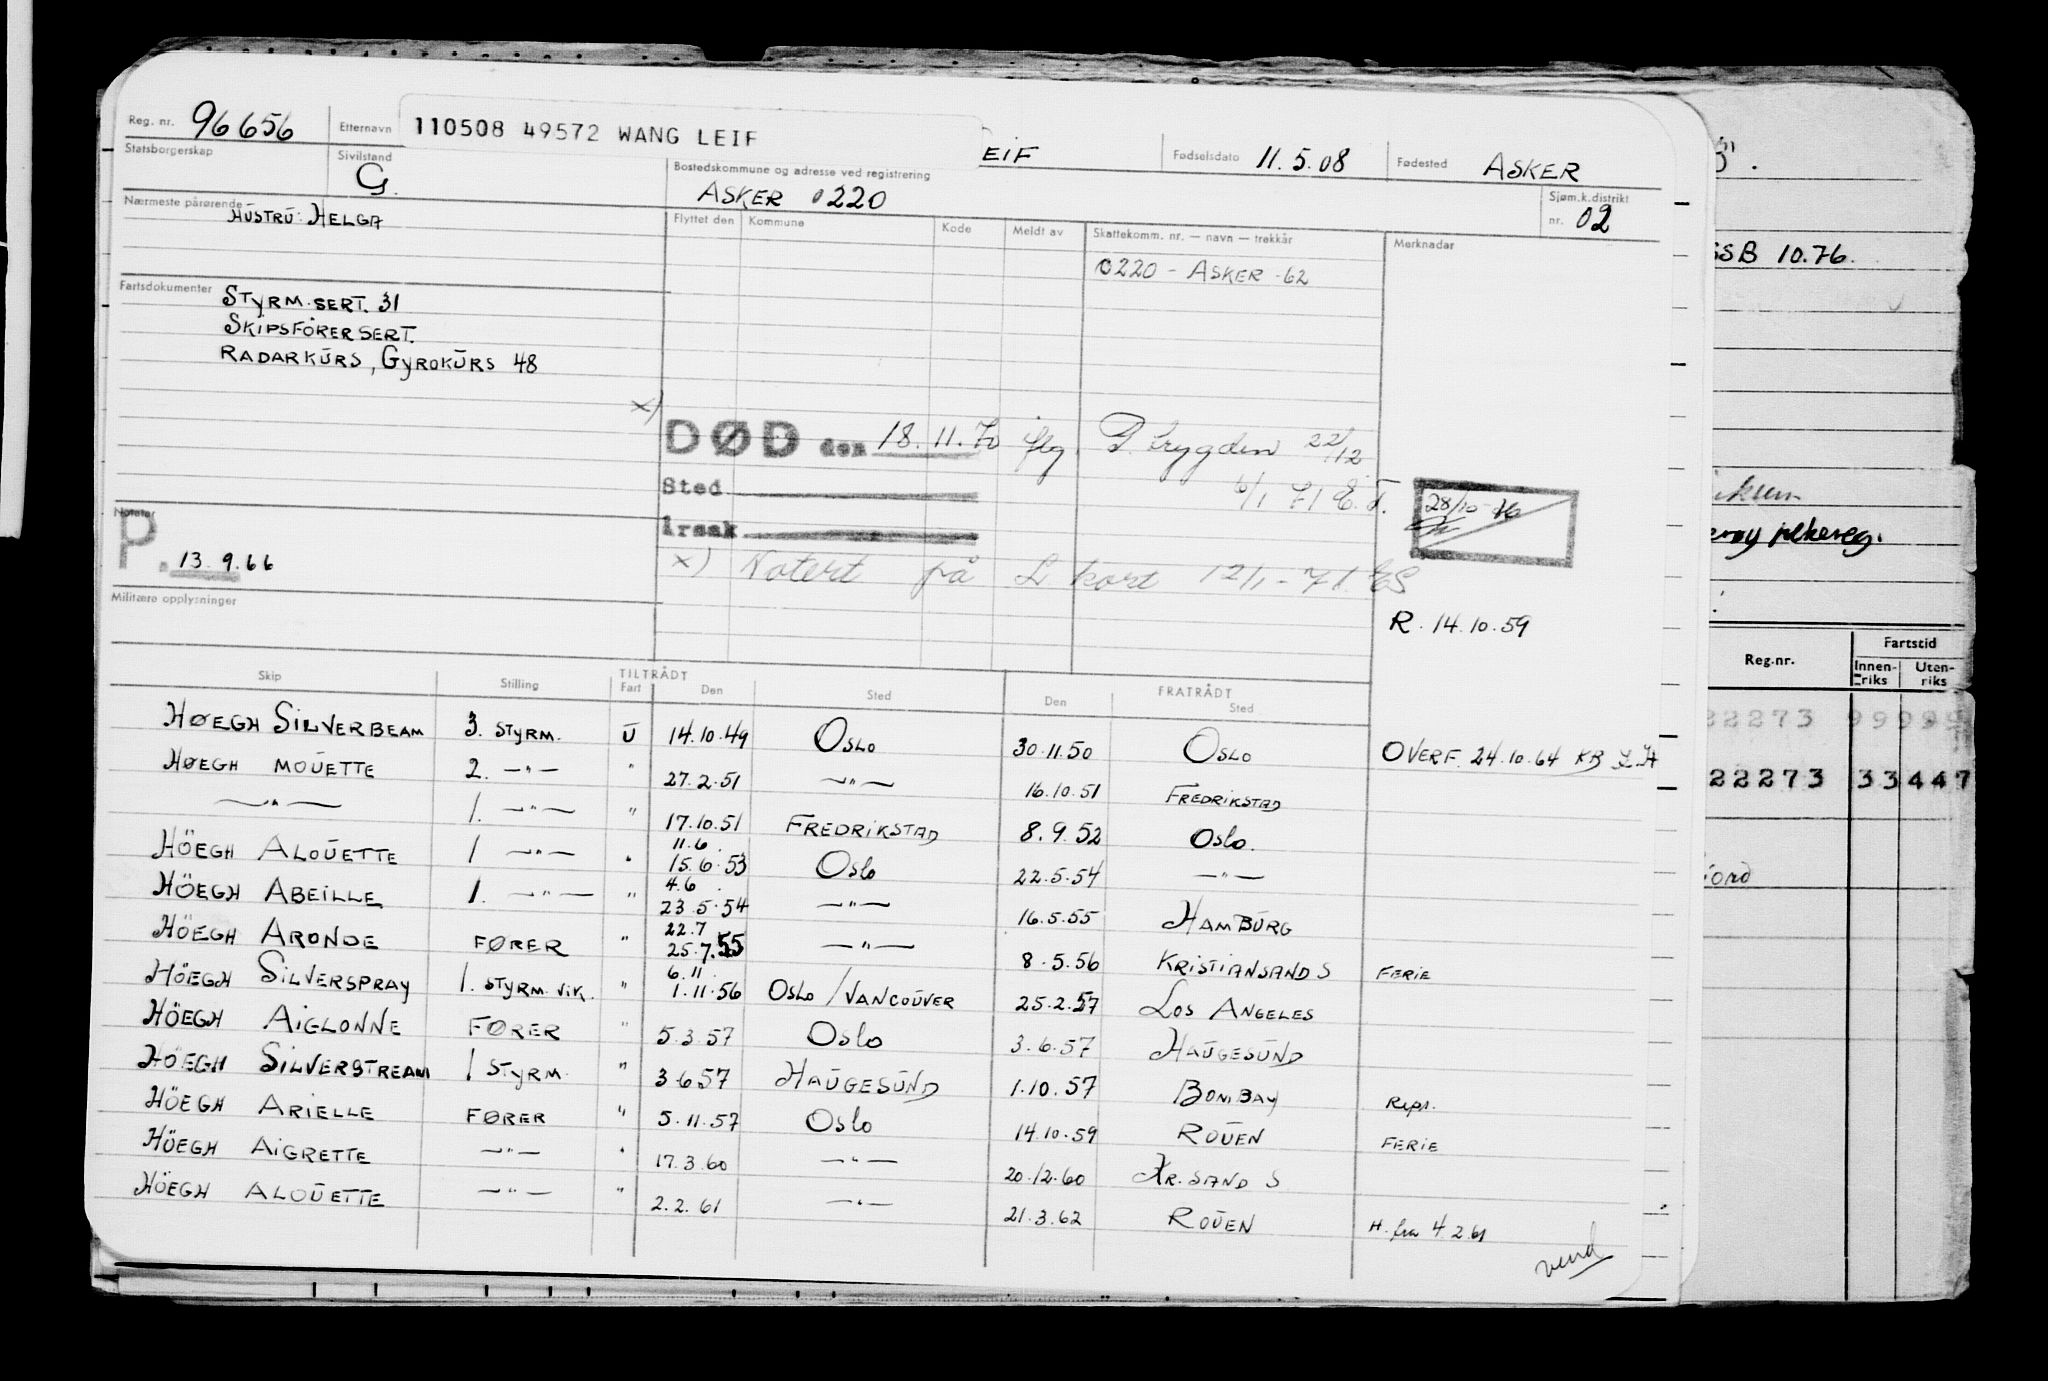 Reg. nr. 96656 Etternavn 110508 49572 WANG LEIF EIF Fødselsdato 11.5.08 Fødested ASKER
Statsborgerskap Sivilstand G. Bostedskommune og adresse ved registrering ASKER 0220 Sjøm.k.distrikt nr. 02
Nærmeste pårørende HUSTRU: HELGA
Flyttet den Kommune Kode Meldt av Skattekomm. nr. — navn — trekkår Merknader
0220 - ASKER -62
SSB 10.76.
Fartsdokumenter STYRM. SERT. 31
SKIPSFÖRER SERT.
RADARKURS, GYROKURS 48
x)
DØD den 18.11.70 flg. P.trygden 22/12
Sted 6/1 71 E.F.
Årsak
28/10-76
x) Notert på L kort 12/1-71 ES
Notater
P. 13.9.66
Militære opplysninger
R. 14.10.59
Skip Stilling TILTRÅDT Fart Den Sted FRATRÅDT Den Sted
HØEGH SILVERBEAM 3. STYRM. U 14.10.49 OSLO 30.11.50 OSLO OVERF. 24.10.64 KB
HØEGH MOUETTE 2. —"— " 27.2.51 —"— 16.10.51 FREDRIKSTAD
—"— 1. —"— " 17.10.51 FREDRIKSTAD 8.9.52 OSLO.
11.6.
HÖEGH ALOUETTE 1 —"— " 15.6.53 OSLO 22.5.54 —"—
4.6.
HÖEGH ABEILLE 1. —"— " 23.5.54 —"— 16.5.55 HAMBURG
22.7
HÖEGH ARONDE FØRER " 25.7.55 —"— 8.5.56 KRISTIANSAND S FERIE
6.11.
HÖEGH SILVERSPRAY 1. STYRM. VIK. " 1.11.56 OSLO/VANCOUVER 25.2.57 LOS ANGELES
HÖEGH AIGLONNE FØRER " 5.3.57 OSLO 3.6.57 HAUGESUND
HÖEGH SILVERSTREAM 1 STYRM. " 3.6.57 HAUGESUND 1.10.57 BOMBAY Repr.
HÖEGH ARIELLE FØRER " 5.11.57 OSLO 14.10.59 ROUEN FERIE
HÖEGH AIGRETTE —"— " 17.3.60 —"— 20.12.60 KR.SAND S
HÖEGH ALOUETTE —"— " 2.2.61 —"— 21.3.62 ROUEN H. fra 4.2.61
vend
Reg.nr. Fartstid
Innenriks Utenriks
22273
22273 33 447